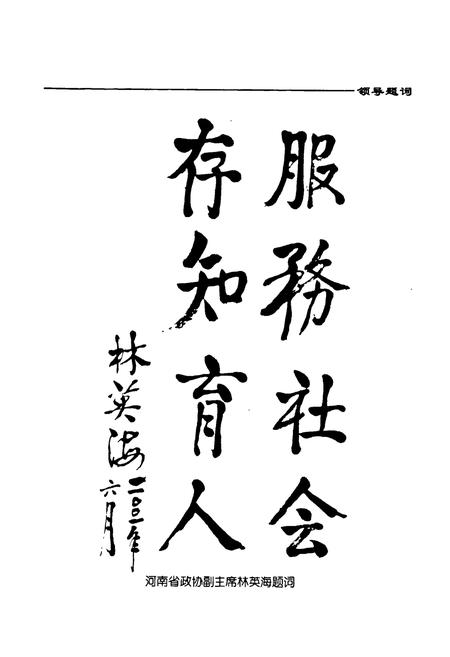 领导题词
服務社会
存知育人
林英海
二〇〇一年
六月
河南省政协副主席林英海题词